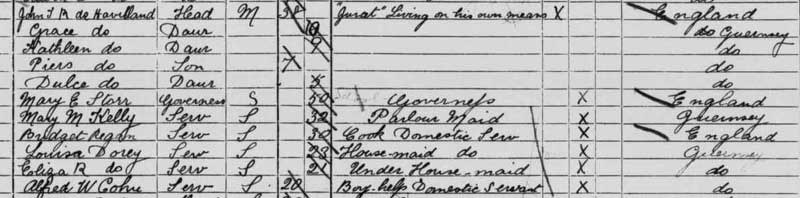 John T R de Havilland Head M "Jurat" Living on his own means X England
Grace do Daur 10 do Guernsey
Kathleen do Daur 9 do
Piers do Son 7 do
Dulce do Daur 5 do
Mary E Storr Governess S 50 Governess X England
Mary M Kelly Serv S 32 Parlour Maid X Guernsey
Bridget Regan Serv S 30 Cook Domestic Serv X England
Louisa Dorey Serv S 23 House-maid do X Guernsey
Eliza R do Serv S 21 Under House-maid X do
Alfred W Serv S 20 Boy-help Domestic Servant X do